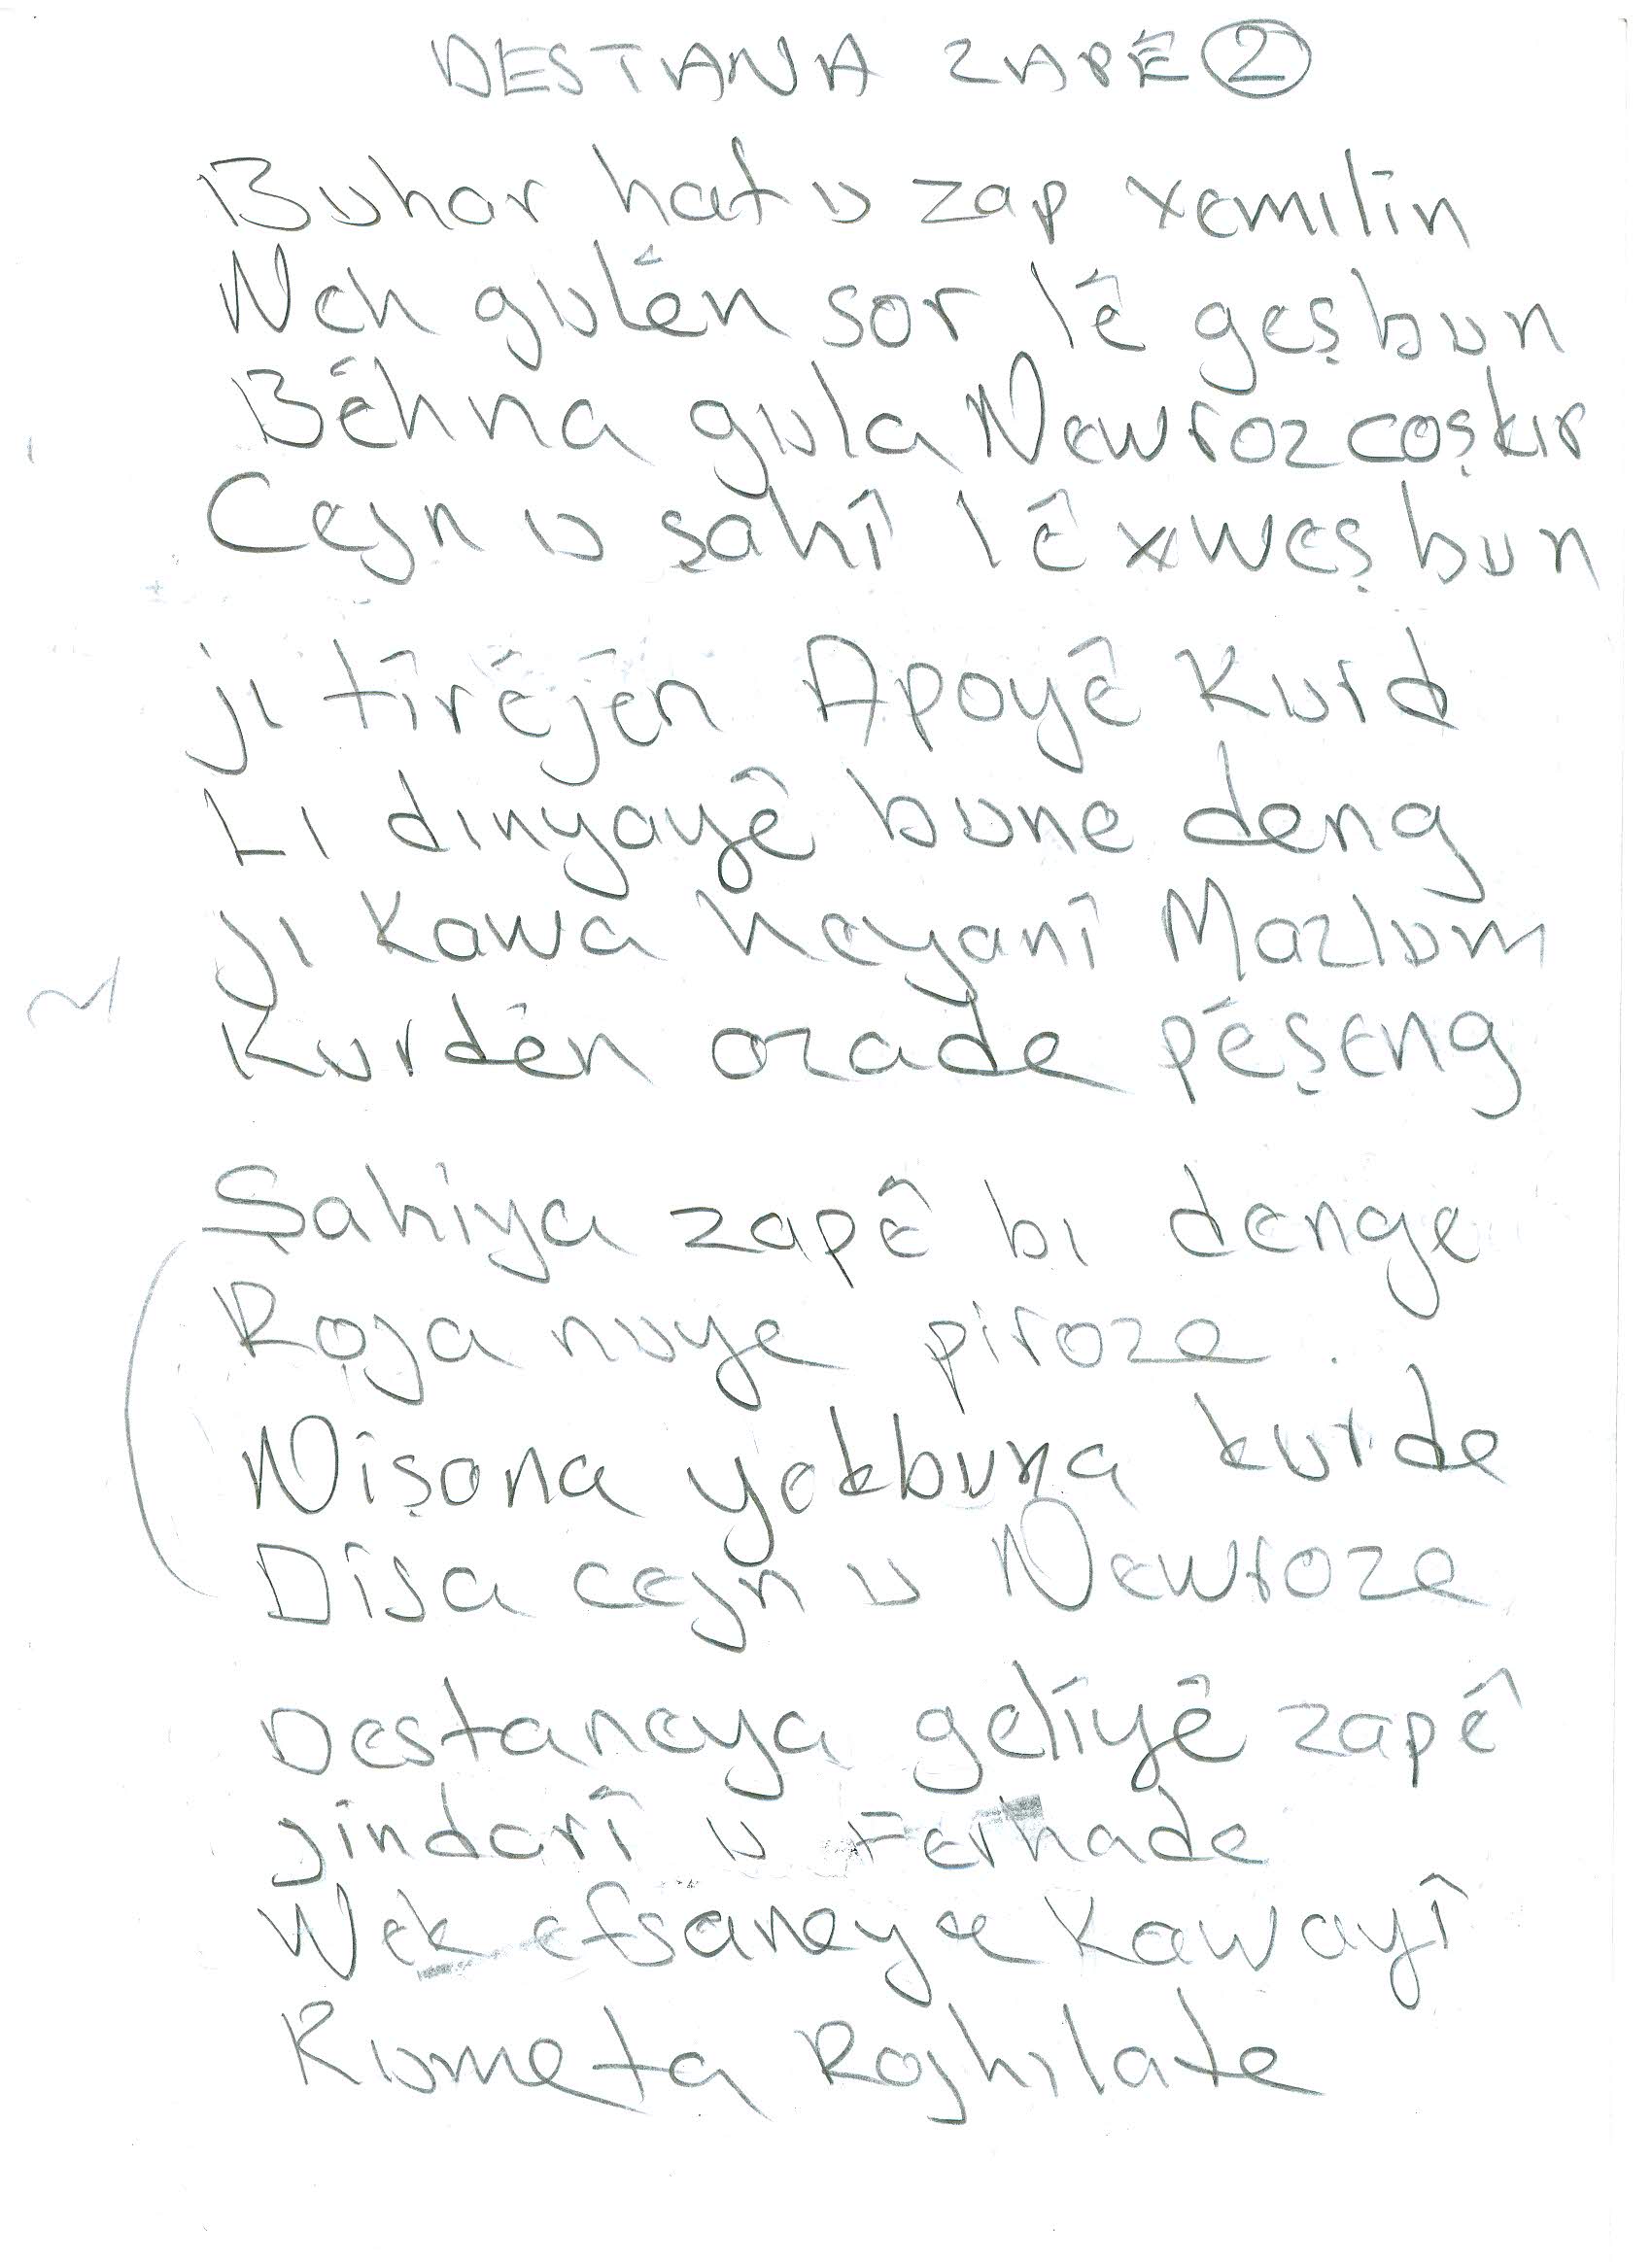 DESTANA ZAPÊ ②
Buhar hat u zap xemılîn
Weh gulên sor lê geşbun
Bêhna gula Newroz coşkır
Cejn u şahî lê xweş bun
ji tîrêjên Apoyê Kurd
Lı dınyayê bune deng
jı Kawa heyanî Mazlum
Kurdên azade pêşeng
Şahiya zapê bı denge
Roja nuye piroze
Nîşana yekbuna kurde
Dîsa cejn u Newroze
Destaneya gelîyê zapê
jindarî u Ferhade
Wek efsaneye Kawayî
Rumeta Rojhılate